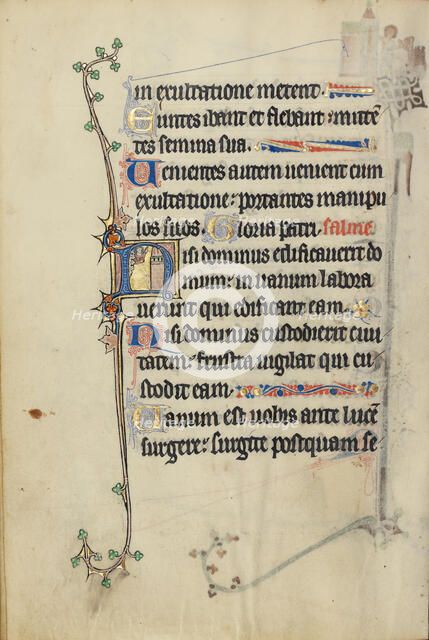 in exultatione metent.
Euntes ibant et flebant: mittē
tes semina sua.
Uenientes autem uenient cum
exultatione: portantes manipu
los suos. Gloria patri. salme
Nisi dominus edificauerit do
mum: in uanum labora
uerunt qui edificant eam.
Nisi dominus custodierit ciui
tatem: frustra uigilat qui cu
stodit eam.
Uanum est uobis ante lucē
surgere: surgite postquam se
Heritage
Heritage
Heritage
Heritage